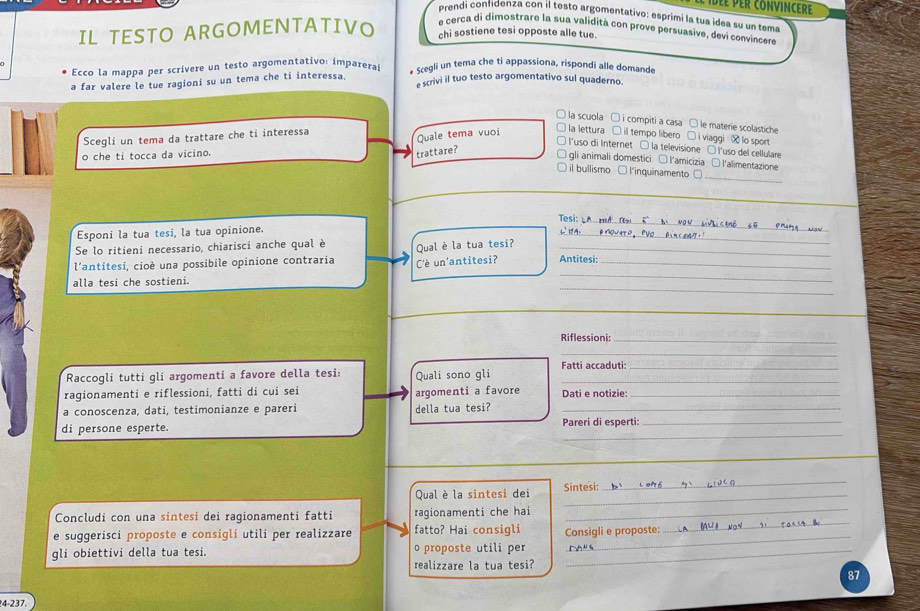 IDEE PER CONVINCERE
IL TESTO ARGOMENTATIVO
• Ecco la mappa per scrivere un testo argomentativo: imparerai
a far valere le tue ragioni su un tema che ti interessa.
Scegli un tema da trattare che ti interessa
o che ti tocca da vicino.
Esponi la tua tesi, la tua opinione.
Se lo ritieni necessario, chiarisci anche qual è
l'antitesi, cioè una possibile opinione contraria
alla tesi che sostieni.
Raccogli tutti gli argomenti a favore della tesi:
ragionamenti e riflessioni, fatti di cui sei
a conoscenza, dati, testimonianze e pareri
di persone esperte.
Concludi con una sintesi dei ragionamenti fatti
e suggerisci proposte e consigli utili per realizzare
gli obiettivi della tua tesi.
4-237.
Prendi confidenza con il testo argomentativo: esprimi la tua idea su un tema
e cerca di dimostrare la sua validità con prove persuasive, devi convincere
chi sostiene tesi opposte alle tue.
• Scegli un tema che ti appassiona, rispondi alle domande
e scrivi il tuo testo argomentativo sul quaderno.
Quale tema vuoi
trattare?
la scuola i compiti a casa le materie scolastiche
la lettura il tempo libero i viaggi lo sport
l'uso di Internet la televisione l'uso del cellulare
gli animali domestici l'amicizia l'alimentazione
il bullismo l'inquinamento
Qual è la tua tesi?
C'è un'antitesi?
Tesi: LA MIA TESI È DI NON GIUDICARE SE PRIMA NON
PROVATO, PUO
Antitesi:
Quali sono gli
argomenti a favore
della tua tesi?
Riflessioni:
Fatti accaduti:
Dati e notizie:
Pareri di esperti:
Qual è la sintesi dei
ragionamenti che hai
fatto? Hai consigli
o proposte utili per
realizzare la tua tesi?
Sintesi: DI COME SI GIOCA
Consigli e proposte: LA NON SI TOCCA
87